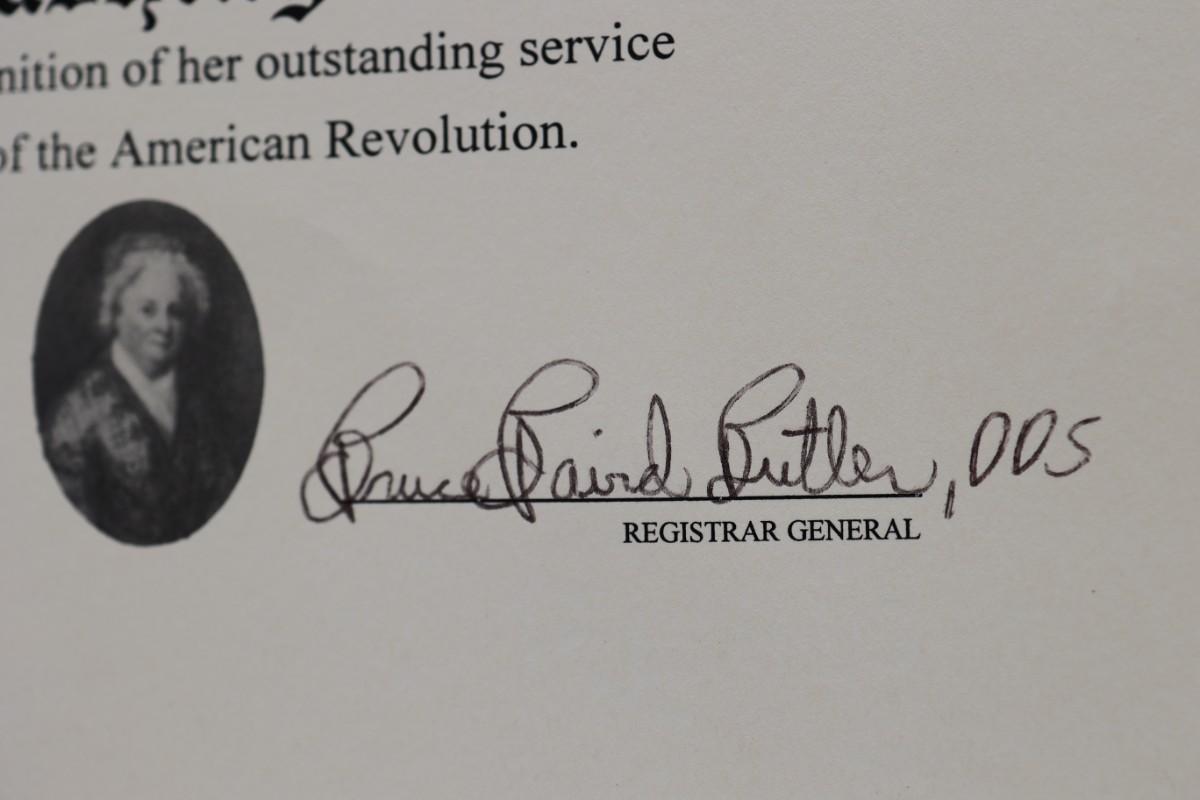 nition of her outstanding service
of the American Revolution.
Bruce Baird Butler, DDS
REGISTRAR GENERAL